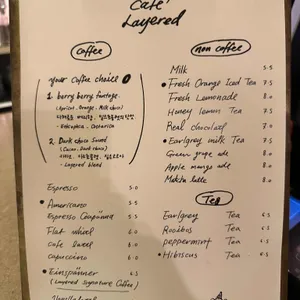 Café
Layered
Coffee
your Coffee choice
1. berry berry fantage.
(Apricot. Orange. Milk choco)
- Ethiopia . Costarica
2. Dark choco Sweed
(Cacao. Dark choco)
- Layered blend
Espresso 5.0
Americano 5.5
Espresso 5.0
Flat wheel 6.0
cafe Laeel 6.0
Capuccino 6.0
Einspänner 6.5
(Layered signature Coffee)
non coffee
Milk 5.5
Fresh Orange Iced Tea 7.5
Fresh Lemonade 8.0
Honey lemon Tea 7.5
Real chocolate 7.0
Earlgrey milk Tea 7.5
Green grape ade 8.0
Apple mango ade 8.0
Matcha latte 8.0
Tea
Earlgrey Tea 6.5
Rooibos Tea 6.5
peppermint Tea 6.5
Hibiscus Tea 6.5